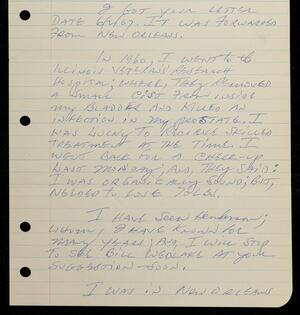 I GOT YOUR LETTER
DATE 6/1/67. IT WAS FORWARDED
FROM NEW ORLEANS.
IN 1960, I WENT to the
ILLINOIS VETERANS RESEARCH
HOSPITAL; WHERE, THEY REMOVED
A SMALL CYST FROM INSIDE
MY BLADDER AND KILLED AN
INFECTION IN MY PROSTATE. I
WAS LUCKY TO RECIEVE SKILLED
TREATMENT AT THE TIME. I
WENT BACK FOR A CHECK-UP
LAST MONDAY; AND, THEY SAID:
I WAS ORGANICALLY SOUND; BUT,
NEEDED TO LOSE 70 LBS.
I HAVE SEEN
WHOM, I HAVE KNOWN FOR
MANY YEARS; AND, I WILL STOP
TO SEE BILL AT YOUR
SUGGESTION - SOON.
I WAS IN NEW ORLEANS